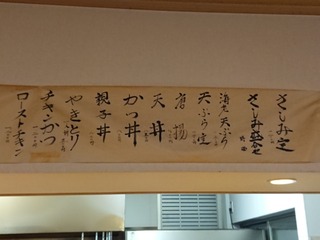 さしみ定
さしみ盛合せ
海老天ぷら
天ぷら定
唐揚
天丼
かつ丼
親子丼
やきとり
チキンかつ
ローストチキン